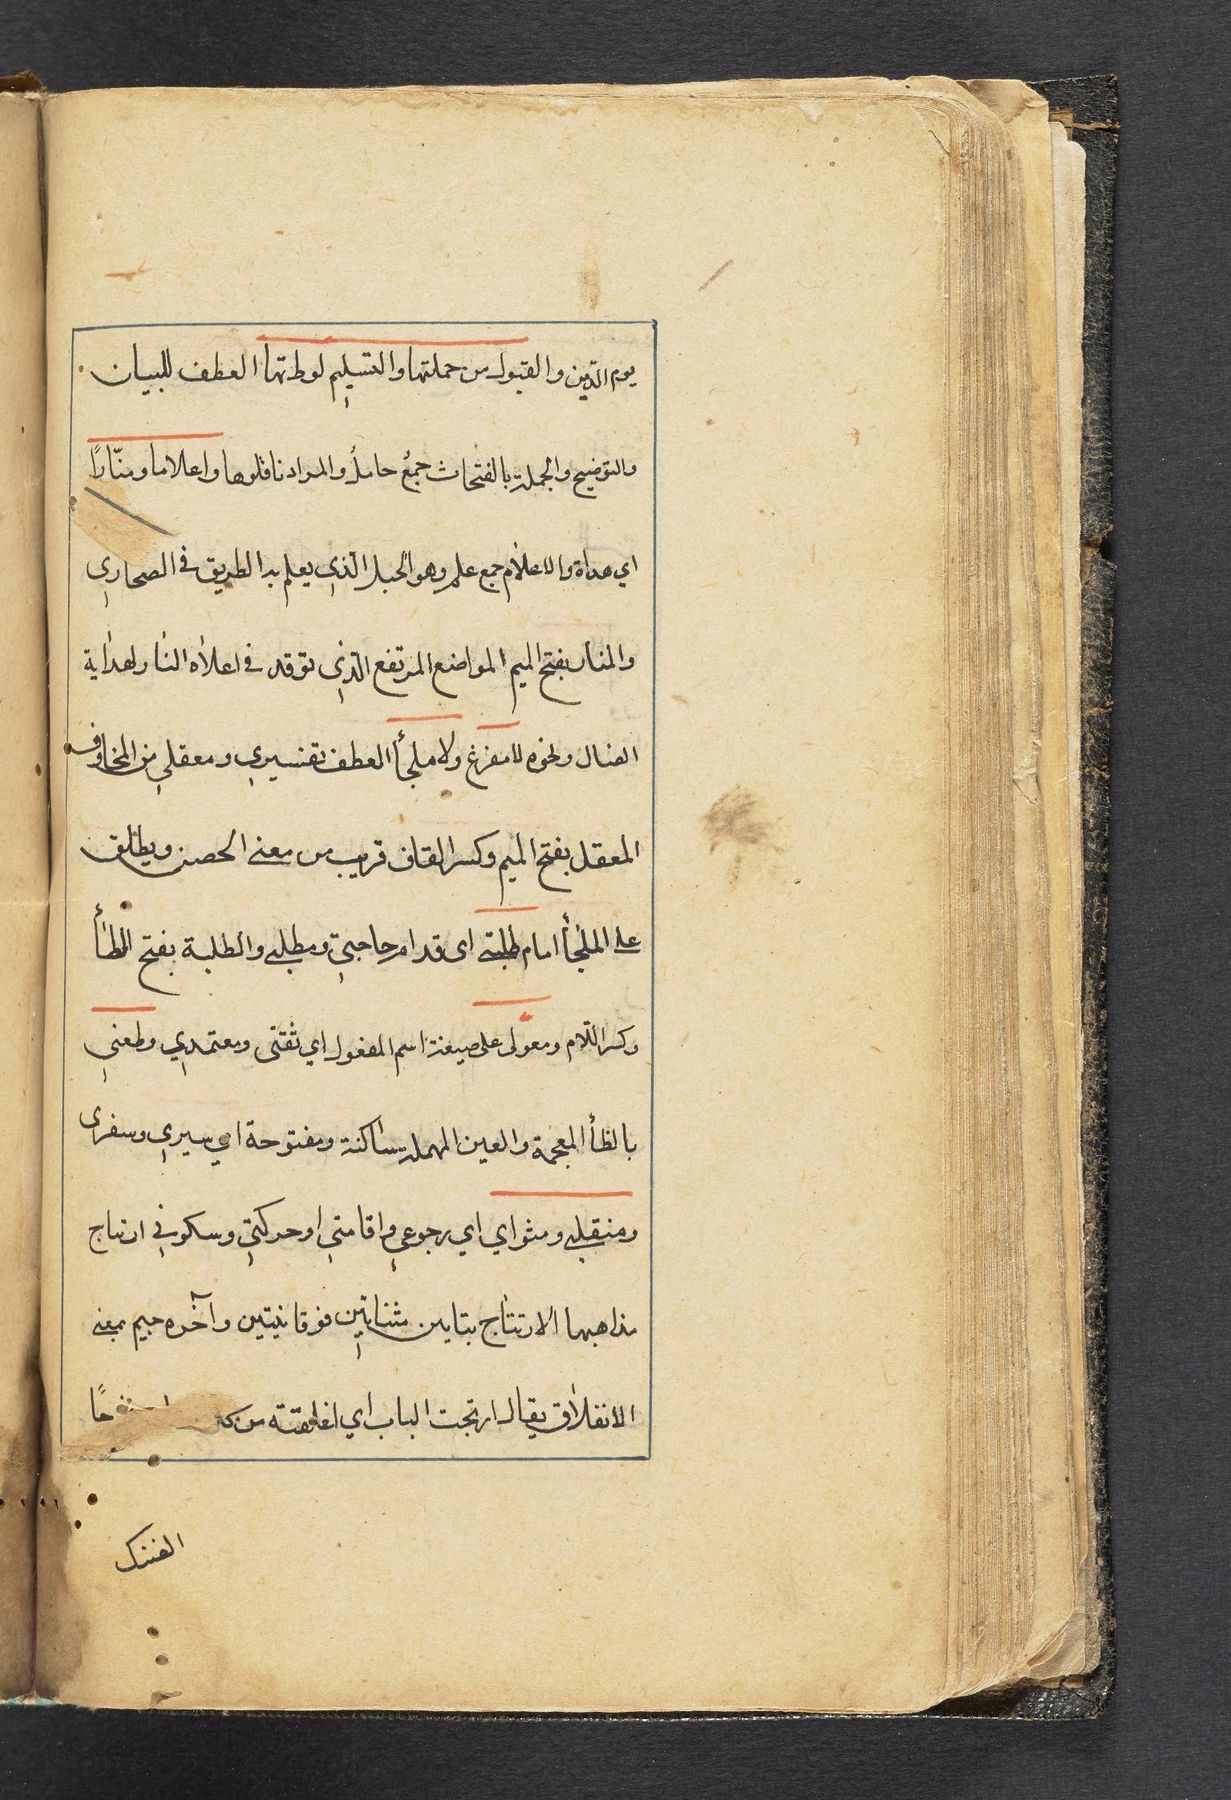 يوم الدّين والقبول من حملتها والتسليم لوطرتها العطف للبيان
والتوضيح والحملة بالفتحات جمعُ حامل والمراد ناقلوها واعلاما ومنّارًا
اي هداة والاعلام جمع علم وهو الجبل الّذي يعلم به الطريق في الصحاري
والمنار بفتح الميم المواضع المرتفع الّذي توقد في اعلاه النار لهداية
الضال ونحوه لا مفزغ ولا ملجأ العطف تفسيري ومعقلي من المخاوف
المعقل بفتح الميم وكسر القاف قريب من معنى الحصن ويطلق
على الملجأ امام طلبتي اى قدام حاجتي ومطلبي والطلبة بفتح الطأ
وكسر اللّام ومعولى على صيغة اسم المفعول اي ثقتى ومعتمدي وظعني
بالظأ المعجمة والعين المهملة ساكنة ومفتوحة اي سيري وسفرى
ومنقلبي ومثواي اي رجوعي واقامتي او حركتي وسكوني في ارتتاج
مذاهبها الارتتاج بتاين مثناتين فوقانيتين وآخره جيم بمعنى
الانغلاق يقال ارتجت الباب اي اغلقته من
الفنتك